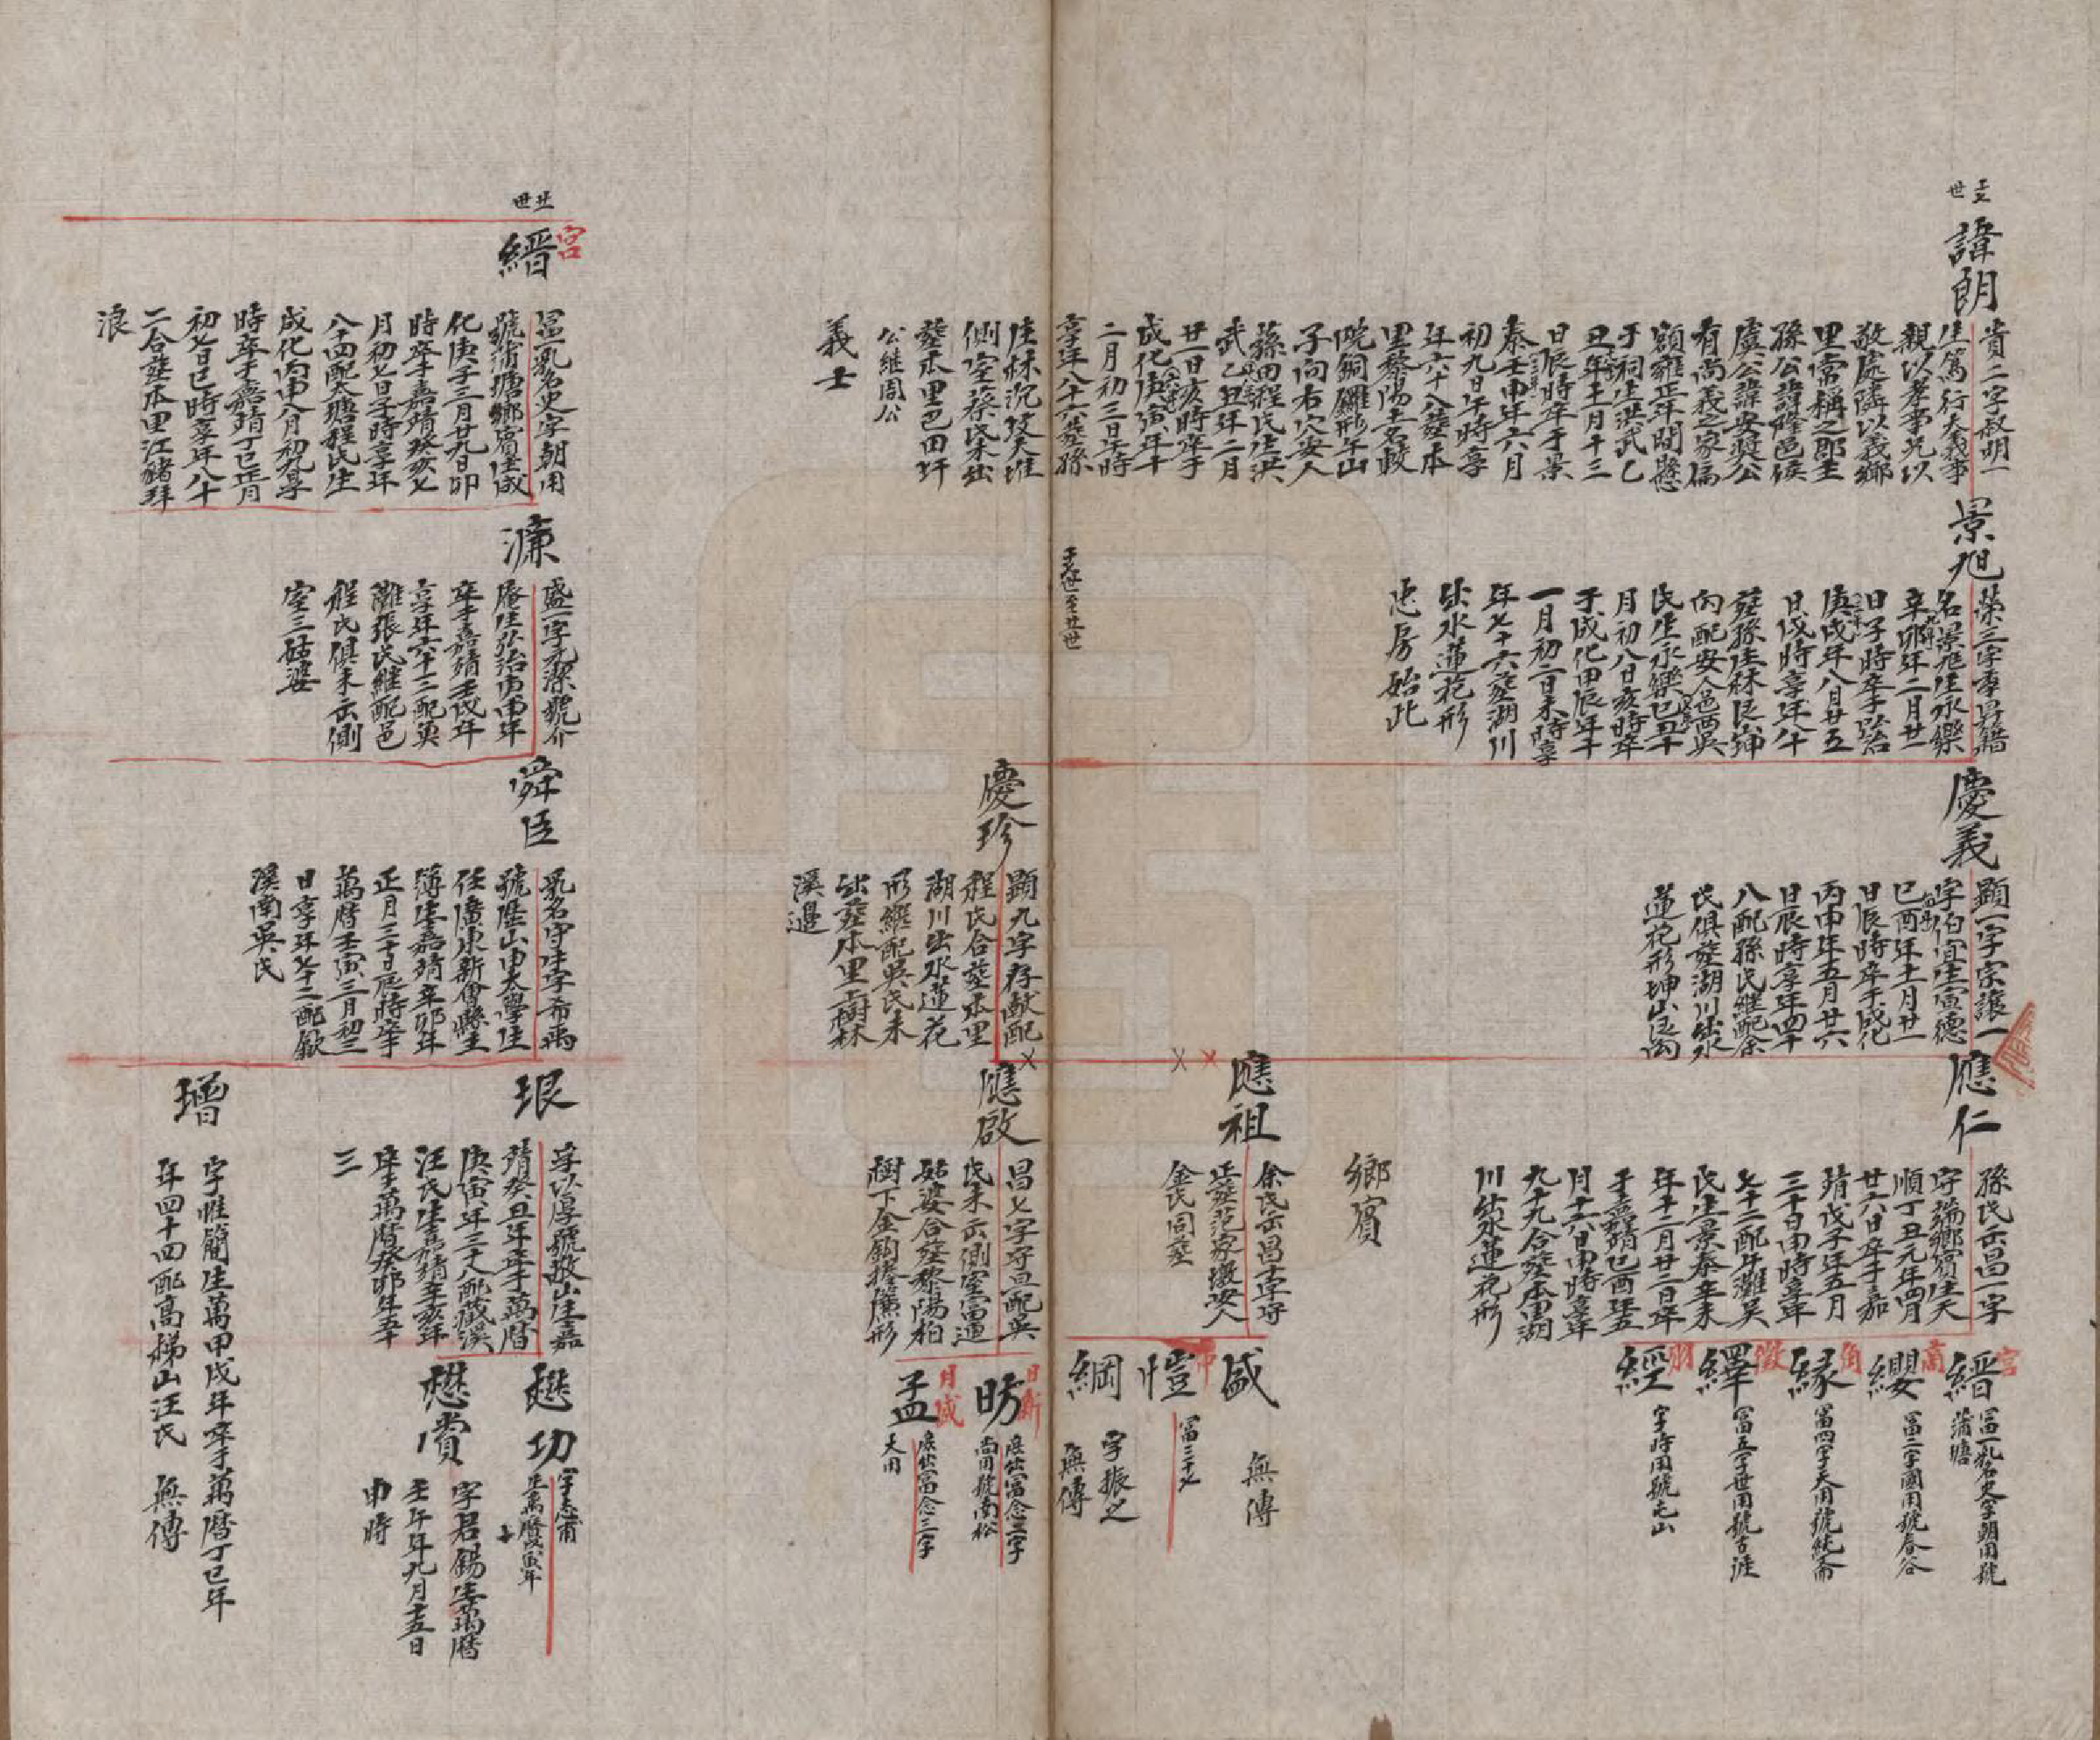 諱朗
貴二字叔明一
生篤行大義事
親以孝事兄以
敬處隣以義鄉
里常稱之郡主
孫公諱隆邑侯
虞公諱安與公
有尚義之家匾
額雍正年間懸
于祠生洪武乙
丑年十一月十三
日辰時卒于景
泰壬申年六月
初九日午時享
年六十八葬本
里黎陽土名教
院銅鑼形午山
子向右穴安人
蓀田程氏生洪
武乙丑年二月
廿一日亥時卒于
成化庚寅年十
二月初三日午時
享年八十六葬孫
佳林沉坟大堆
側室蔡氏未出
葬本里邑田圩
公繼周公
義士
景旭
榮三字季昇籍
名景旭生永樂
辛卯年二月廿一
日子時卒于弘治
庚戌年八月廿五
日戌時享年八十
葬孫佳林艮山坤
向配安人邑西吳
氏生永樂己丑十
月初八日亥時卒
于成化甲辰年十
一月初二日未時享
年七十六葬湖川
出水蓮花形
忠房始此
慶義
顯一字宗讓一
字伯宜生宣德
己酉年十一月廿一
日辰時卒于成化
丙申年五月廿六
日辰時享年四十
八配孫氏繼配余
氏俱葬湖川出水
蓮花形坤山艮向
慶珍
顯九字存獻配
程氏合葬本里
湖川出水蓮花
形繼配吳氏未
出葬本里樹林
溪邊
應仁
孫氏出昌一字
守端鄉賓生天
順丁丑元年四月
廿六日卒于嘉
靖戊子年五月
三十日申時享年
七十二配牛灘吳
氏生景泰辛未
年十二月廿二日卒
于嘉靖己酉年五
月十六日申時享年
九十九合葬本里湖
川出水蓮花形
鄉賓
應祖
余氏出昌守
正葬范家墩安人
金氏同葬
應啟
昌七字守亘配吳
氏未出側室富通
姑婆合葬黎陽柏
樹下金鈎掛簾形
宮
縉
富一乳名史字朝用號
蒲塘
商
纓
富二字國用號春谷
角
緣
富四字天用號純齋
徵
繹
富五字世用號古涯
羽
經
字時用號屯山
盛
無傳
愷
富三十七
綱
字振之
無傳
日新
昉
庶出富念二字
尚用號南松
月盛
孟
庶出富念三字
大用
廿世
宮
縉
富一乳名史字朝用
號蒲塘鄉賓生成
化庚子三月廿九日卯
時卒于嘉靖癸亥七
月初七日子時享年
八十四配大塘程氏生
成化丙申八月初九享
時卒于嘉靖丁巳正月
初七日巳時享年八十
二合葬本里江豬拜
浪
濂
盛一字元潔號介
庵生弘治庚申年
卒于嘉靖壬戌年
享年六十三配奠
灘張氏繼配邑
程氏俱未出側
室三姑婆
舜臣
乳名守生字希禹
號歷山由太學生
任廣東新會縣主
簿生嘉靖辛卯年
正月三十日辰時卒于
萬曆壬寅三月初三
日享年七十二配歙
溪南吳氏
珢
字以厚號敬山生嘉
靖癸丑年卒于萬曆
庚寅年三十八配茂溪
汪氏生嘉靖辛亥年
卒于萬曆癸卯年五十
三
璔
字惟簡生萬甲戌年卒于萬曆丁巳年
年四十四配高梯山汪氏 無傳
懋功
字志甫
生萬曆庚寅年
懋賞
字君錫生萬曆
壬午年九月十五日
申時